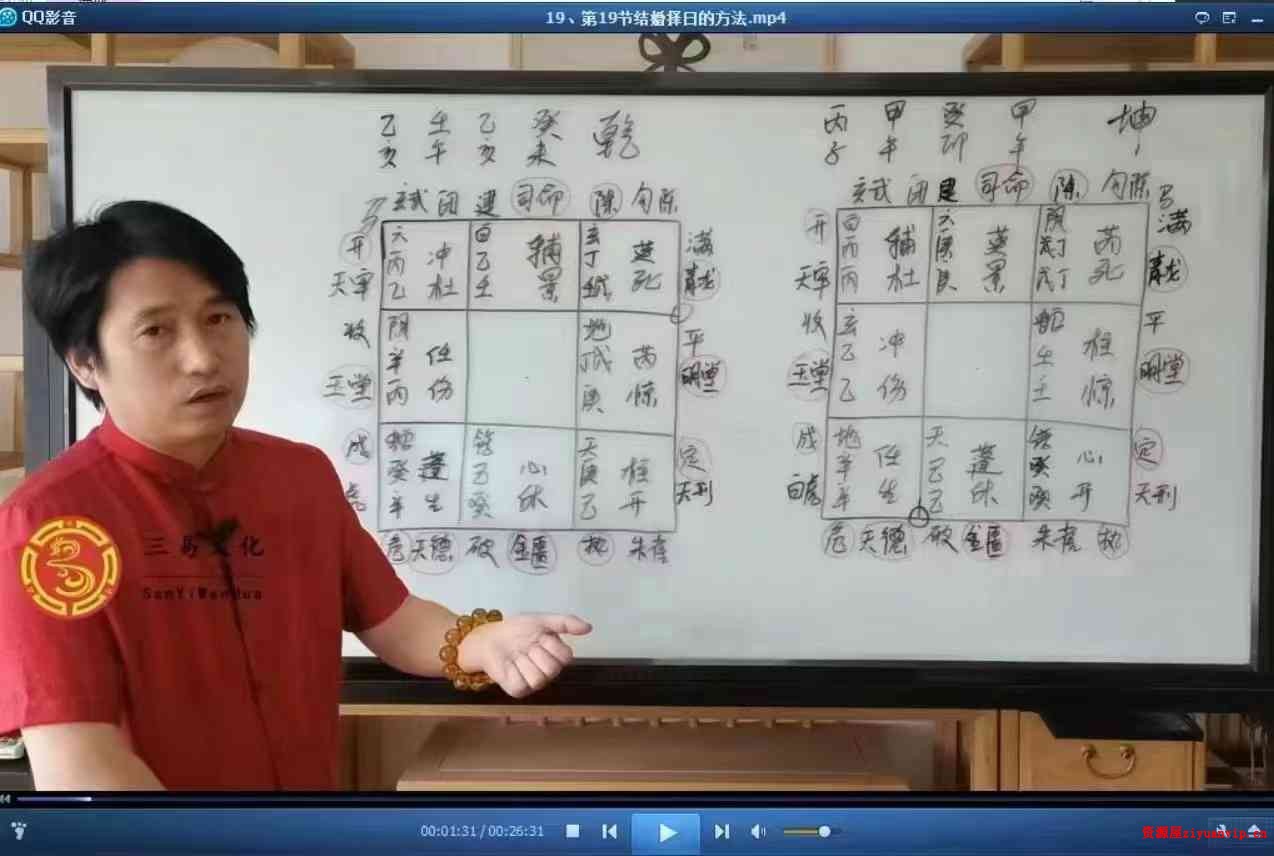 QQ影音
19、第19节结婚择日的方法.mp4
乙 壬 乙 癸 乾
亥 午 亥 未
玄武 闭 建 司命 除 勾陈
马
开
天牢
收
玉堂
成
六丙乙 冲杜
白乙壬 辅景
玄丁 死
阴辛丙 任伤
地 庚 芮惊
癸辛 蓬生
乙癸 心休
天庚己 柱开
满
青龙
平
明堂
定
天刑
危 天德 破 金匮 执 朱雀
丙 甲 癸 甲 坤
子 午 卯 午
玄武 闭 建 司命 除 勾陈
马
开
天牢
收
玉堂
成
白虎
白丙丙 辅杜
六庚庚 英景
阴 芮死
玄乙乙 冲伤
壬壬 柱惊
地辛辛 任生
天己己 蓬休
癸癸 心开
满
青龙
平
明堂
定
天刑
危 天德 破 金匮 朱雀 执
三易文化
SanYiWenHua
00:01:31/00:26:31
资源屋ziyuanvip.cn